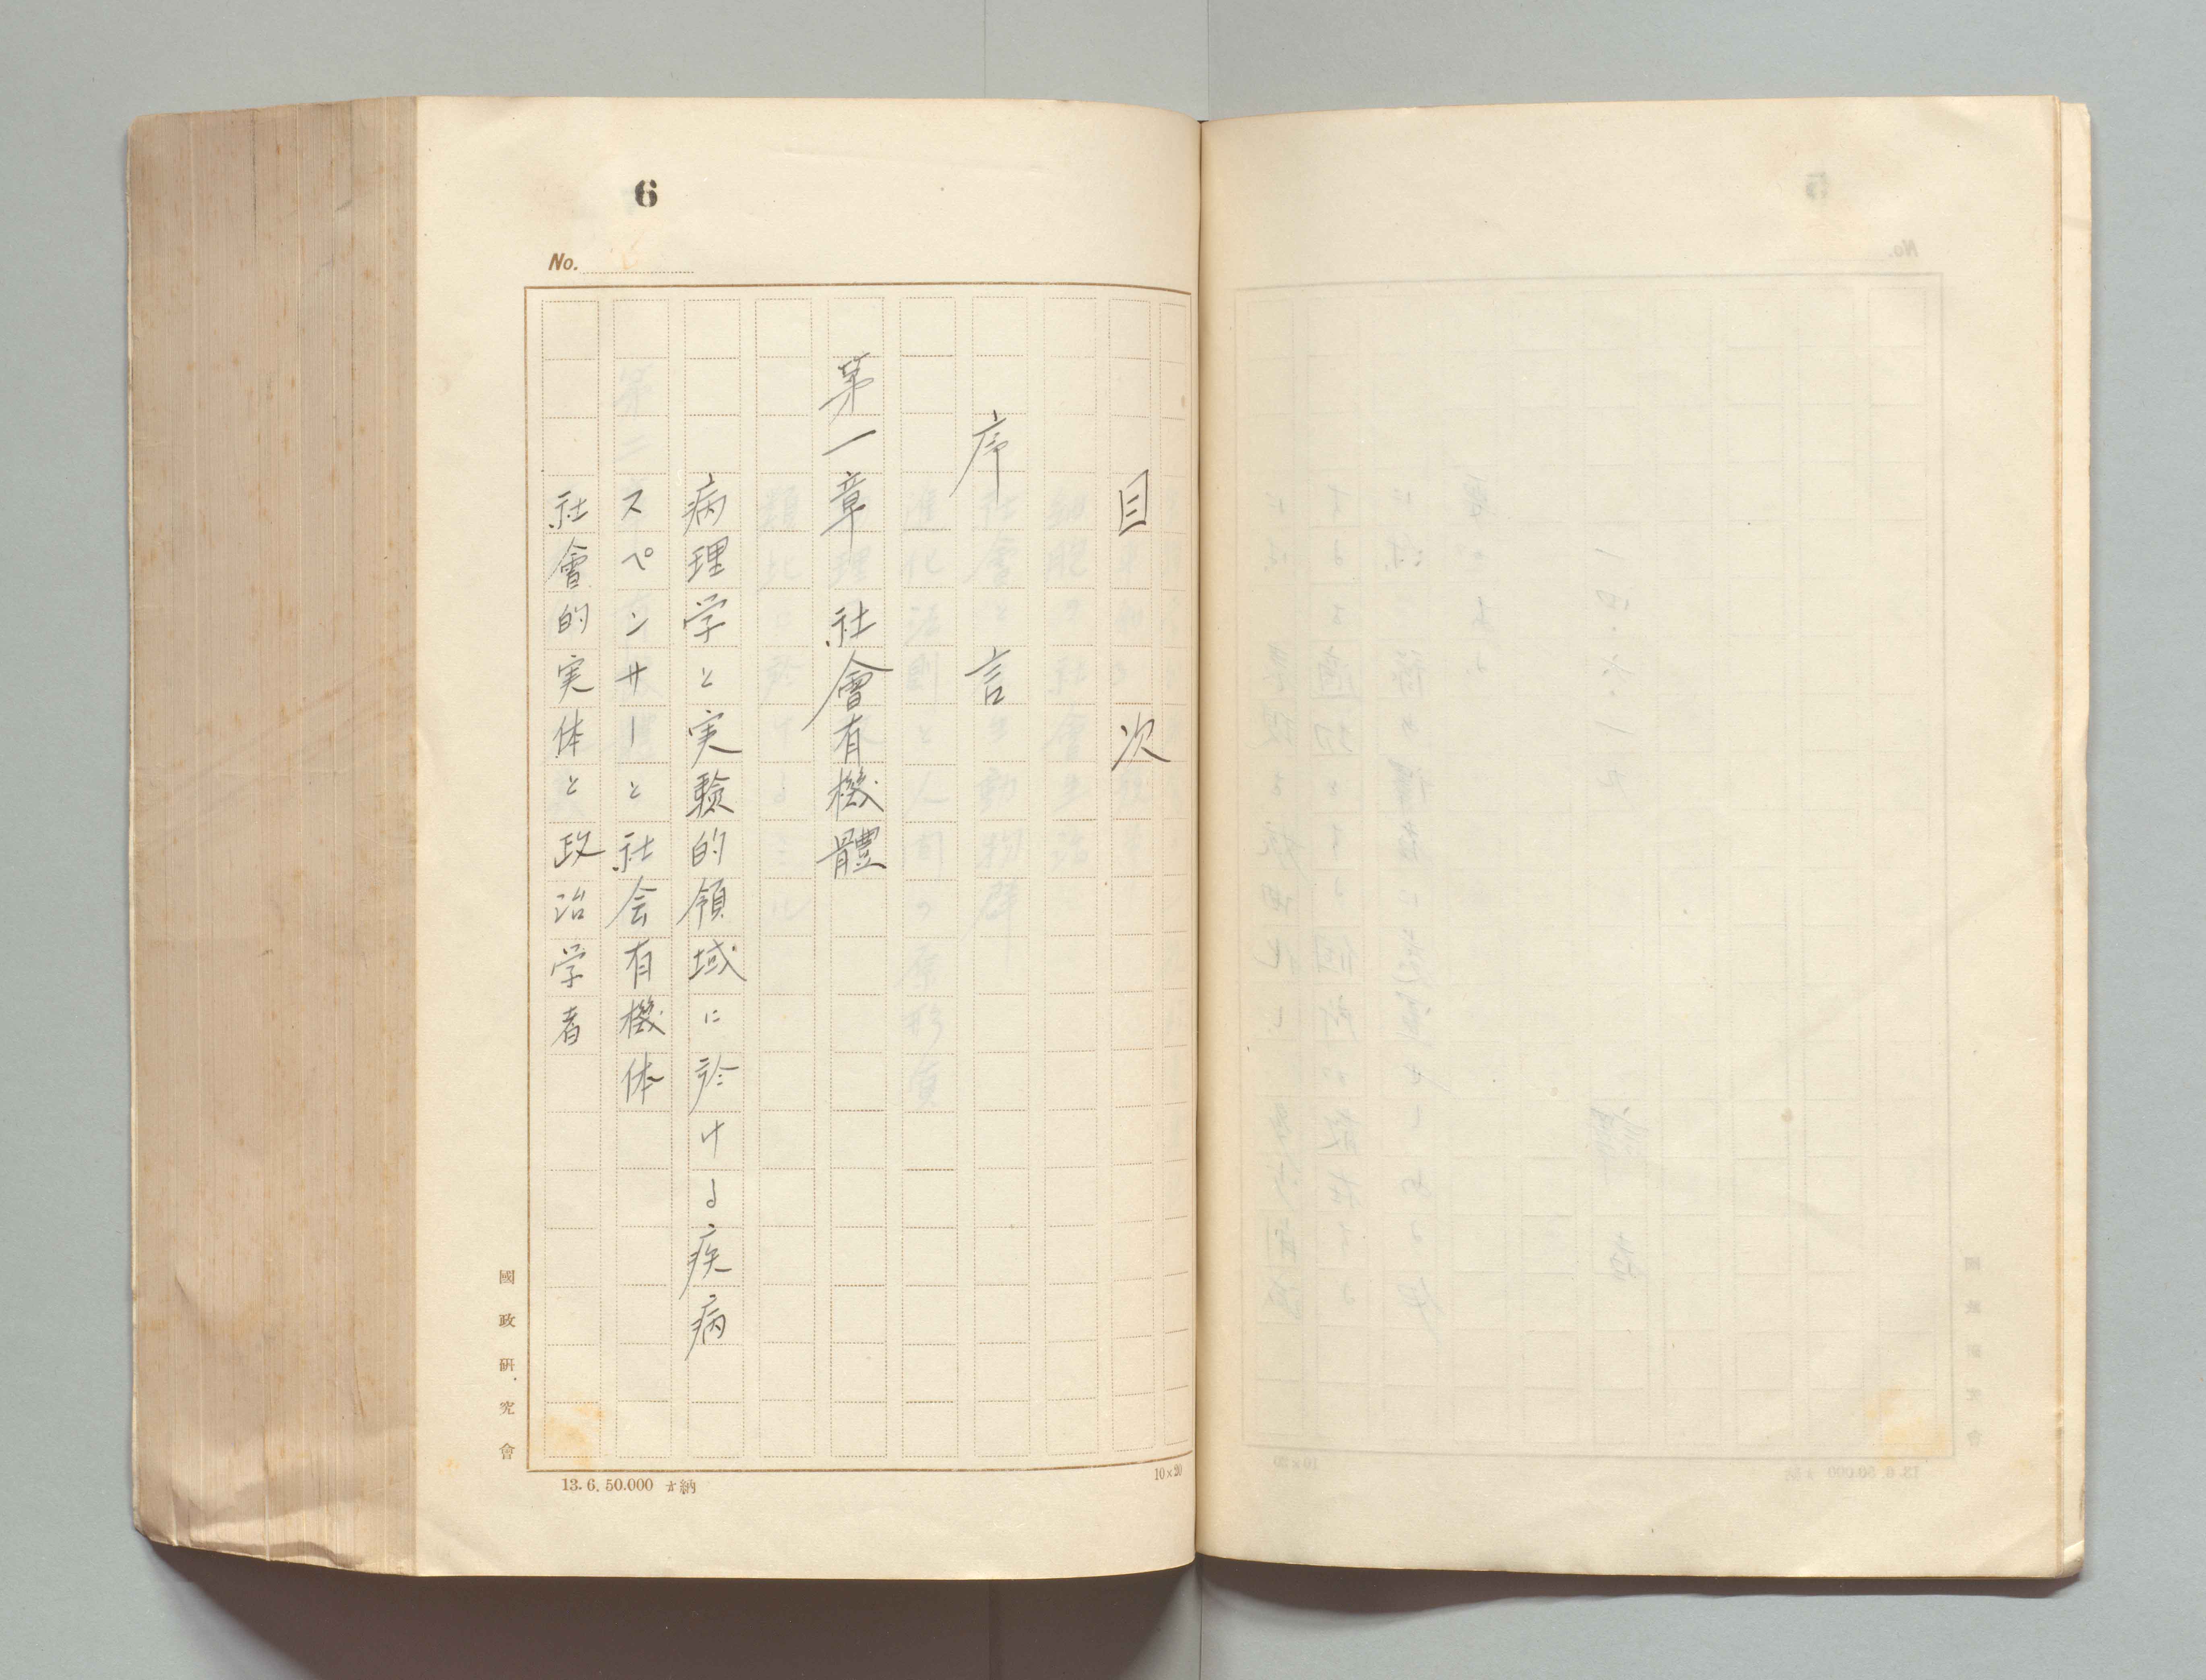 6
No.
目次
序言
第一章 社會有機體
病理学と実験的領域に於ける疾病
スペンサーと社会有機体
社會的実体と政治学者
國政研究會
13.6.50.000 納
10×20